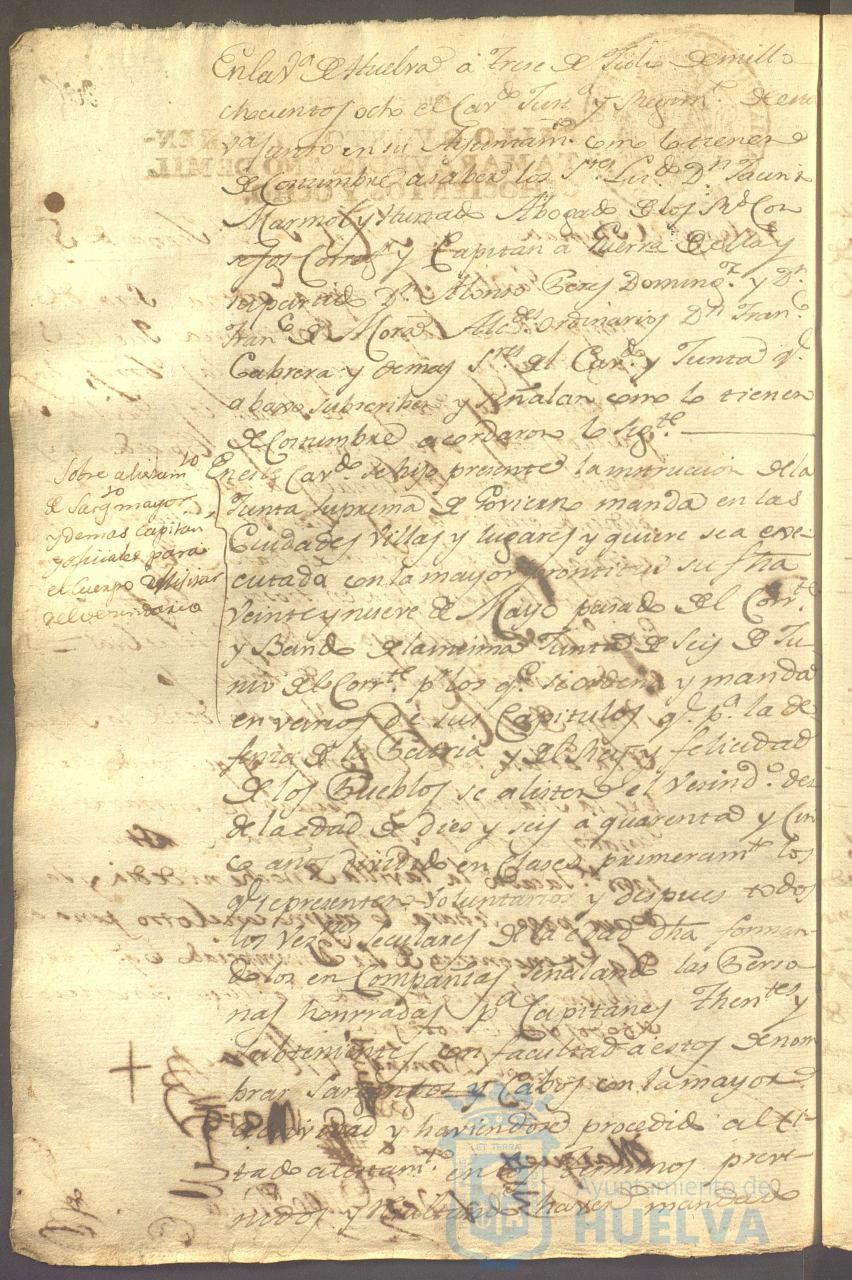 En la Vª de Huelva à Trese de Julio de mill o
chocientos ocho el Cavdº Junª y Regimtº de esta
vª junto en su Ayuntamtº como lo tienen
de Costumbre asaber los Sres Licdº Dn Jacinto
Marmol y Hurtado Abogado de los Rs Con
sejos Corregr y Capitan a Guerra de ella y
su partido Dn Alonso Peres Domingz y Dn
Franco de Mora Alcdes Ordinarios Dn Franco
Cabrera y demas Sres del Cavdº y Junta qe
abaxo subscriben y señalan como lo tienen
de Costumbre acordaron lo sigte
Sobre alistamto
de Sargto mayor
y demas Capitan
y oficiales para
el Cuerpo Militar
del vecindario
En este Cavdº se hizo presente la instrucion de la
Junta Suprema de Govierno manda en las
Ciudades Villas y lugares y quiere sea exe
cutada con la mayor prontitud su fha
Veinte y nueve de Mayo pasado del Corrte
y Bando de la misma Junta de seis de Ju
nio del Corrte pr los qe se ordena y manda
en varios de sus Capitulos qe pª la de
fensa de la Patria y del Rey y felicidad
de los Pueblos se aliste el Vecindº des
de la edad de dies y seis a quarenta y cin
co años dividido en Clases primeramte los
qe se presenten Voluntarios y despues todos
los Vecinos seculares de la edad dha forman
dolos en Compañias señalando las Perso
nas honrradas pª Capitanes Thentes y
Subtenientes con facultad a estos de nom
brar Sargentos y Cabos con la mayor
actividad y haviendose procedido al ci
tado alistamto en los terminos preve
nidos y haver mandado
Ayuntamiento de
HUELVA